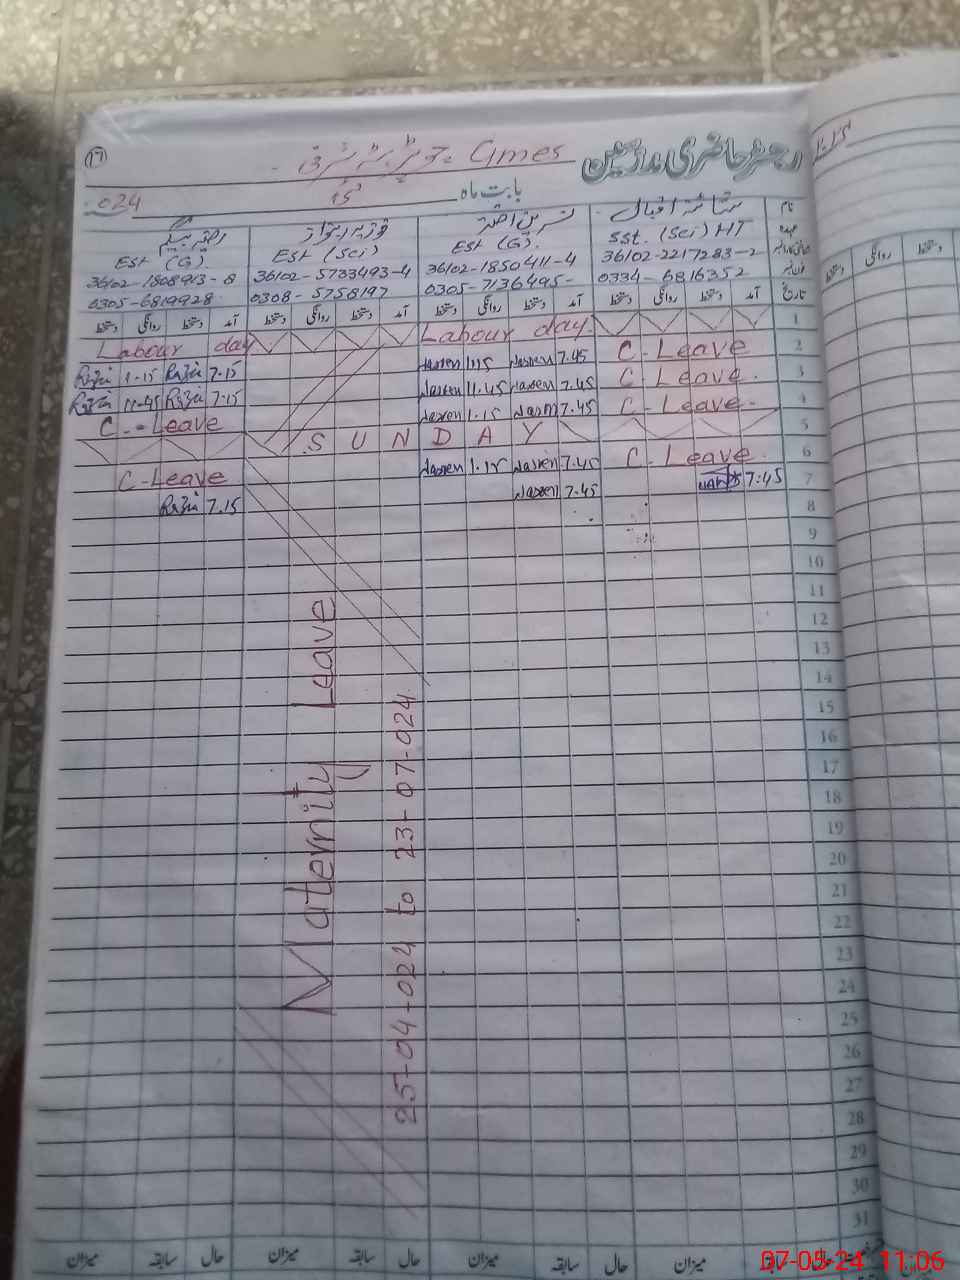 17
رجسٹر حاضری مدرسین
Gmes
024 مئی بابت ماہ
نام
شائستہ اقبال
نسرین اختر
فوزیہ نواز
رضیہ بیگم
عہدہ
SST. (Sci) HT
Est (G).
Est (Sci)
Est (G).
36102-2217283-2
36102-1850411-4
36102-5733493-4
36102-1508913-8
0334-6816352
0305-7136495-
0308-5758197
0305-6819928
تاریخ
آمد دستخط روانگی دستخط
آمد دستخط روانگی دستخط
آمد دستخط روانگی دستخط
آمد دستخط روانگی دستخط
1 Labour day Labour day
2 C-Leave 7.45 Nasren 1.15 Nasren 7.15 Razia 1.15 Razia
3 C-Leave. 7.45 Nasren 11.45 Nasren 7.15 Razia 11.45 Razia
4 C-Leave. 7.45 Nasren 1.15 Nasren C.-Leave
5 SUNDAY
6 C-Leave. 7.45 Nasren 1.15 Nasren C-Leave
7 7:45 7.45 Nasren 7.15 Razia
8
9
10
11
12
13
14
15
16
17
18
19
20
21
22
23
24
25
26
27
28
29
30
31
Maternity Leave
25-04-024 to 23-07-024
حال سابقہ میزان حال سابقہ میزان حال سابقہ میزان
میزان
دستخط روانگی دستخط
07-05-24 11:06